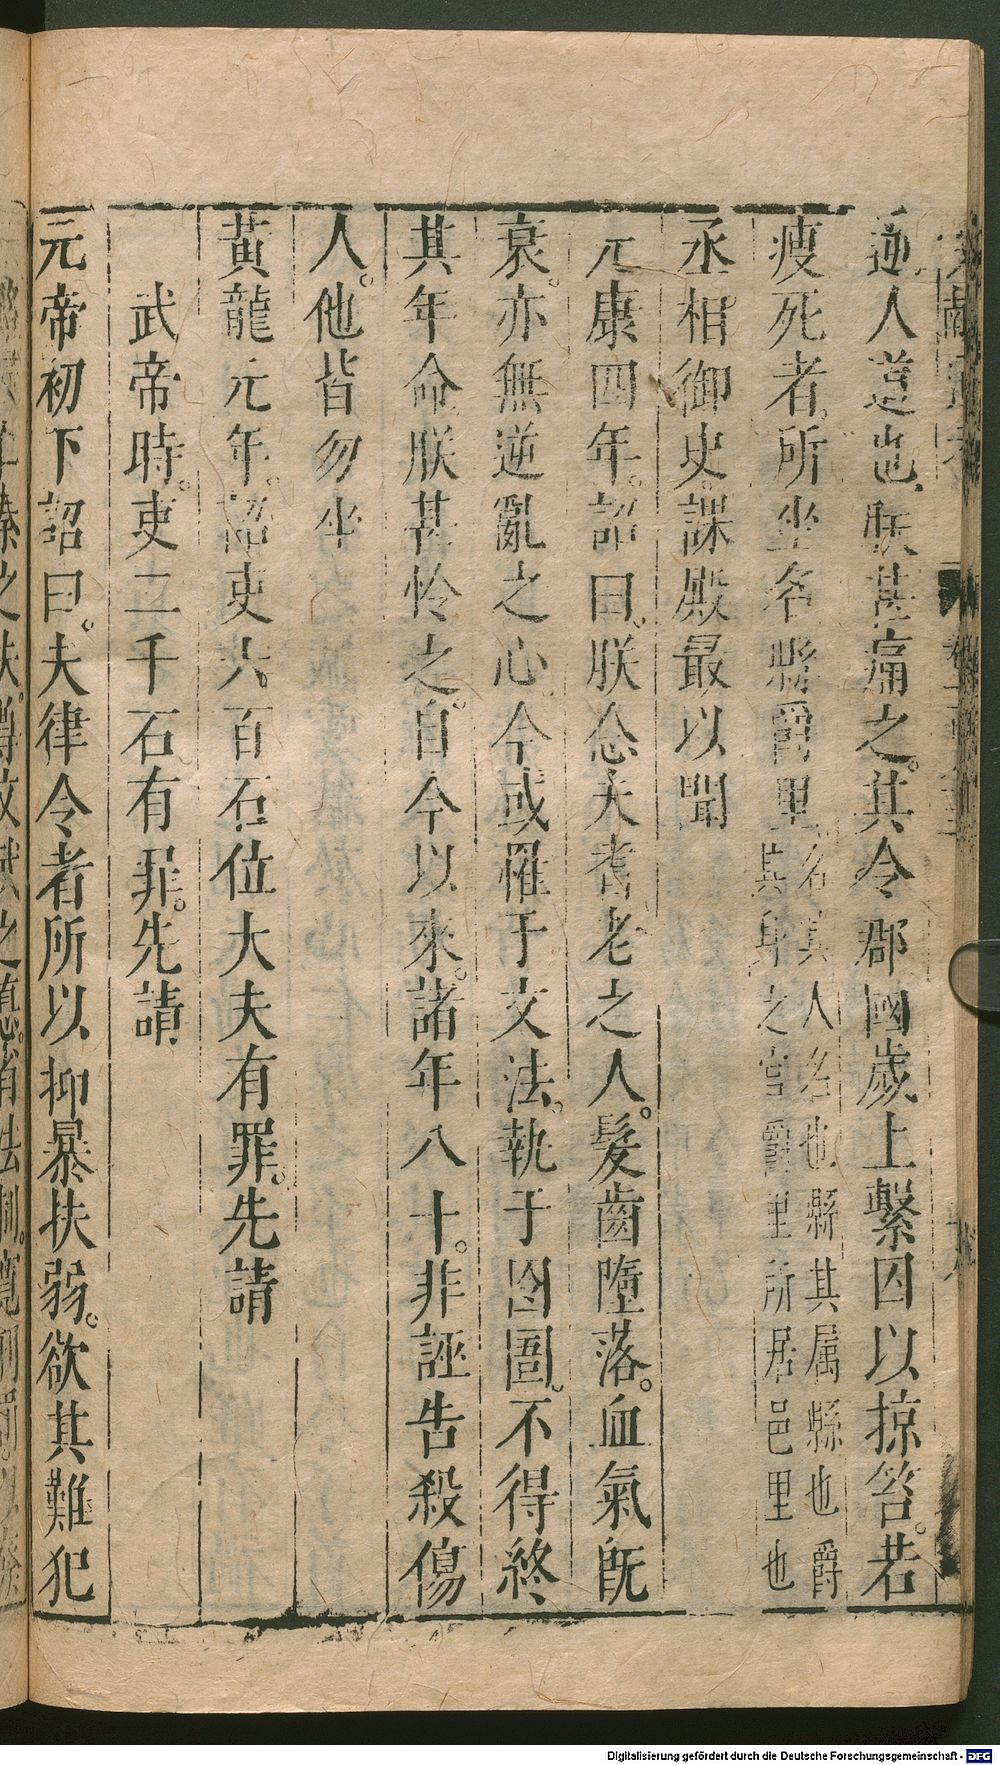 逆人道也朕甚痛之。其令郡國歲上繫囚以掠笞。若
瘐死者。所坐名縣爵里名其人名也縣其属縣也爵
其身之官爵里所居邑里也
丞相御史課殿最以聞
元康四年。詔曰。朕念夫耆老之人。髮齒墮落。血氣既
衰。亦無逆亂之心。今或罹于文法。執于囹圄。不得終
其年命朕甚怜之。自今以來。諸年八十。非誣告殺傷
人。他皆勿坐
黃龍元年。詔吏六百石位大夫有罪。先請
武帝時。吏二千石有罪。先請
元帝初下詔曰。夫律令者所以抑暴扶弱。欲其難犯
Digitalisierung gefördert durch die Deutsche Forschungsgemeinschaft - DFG